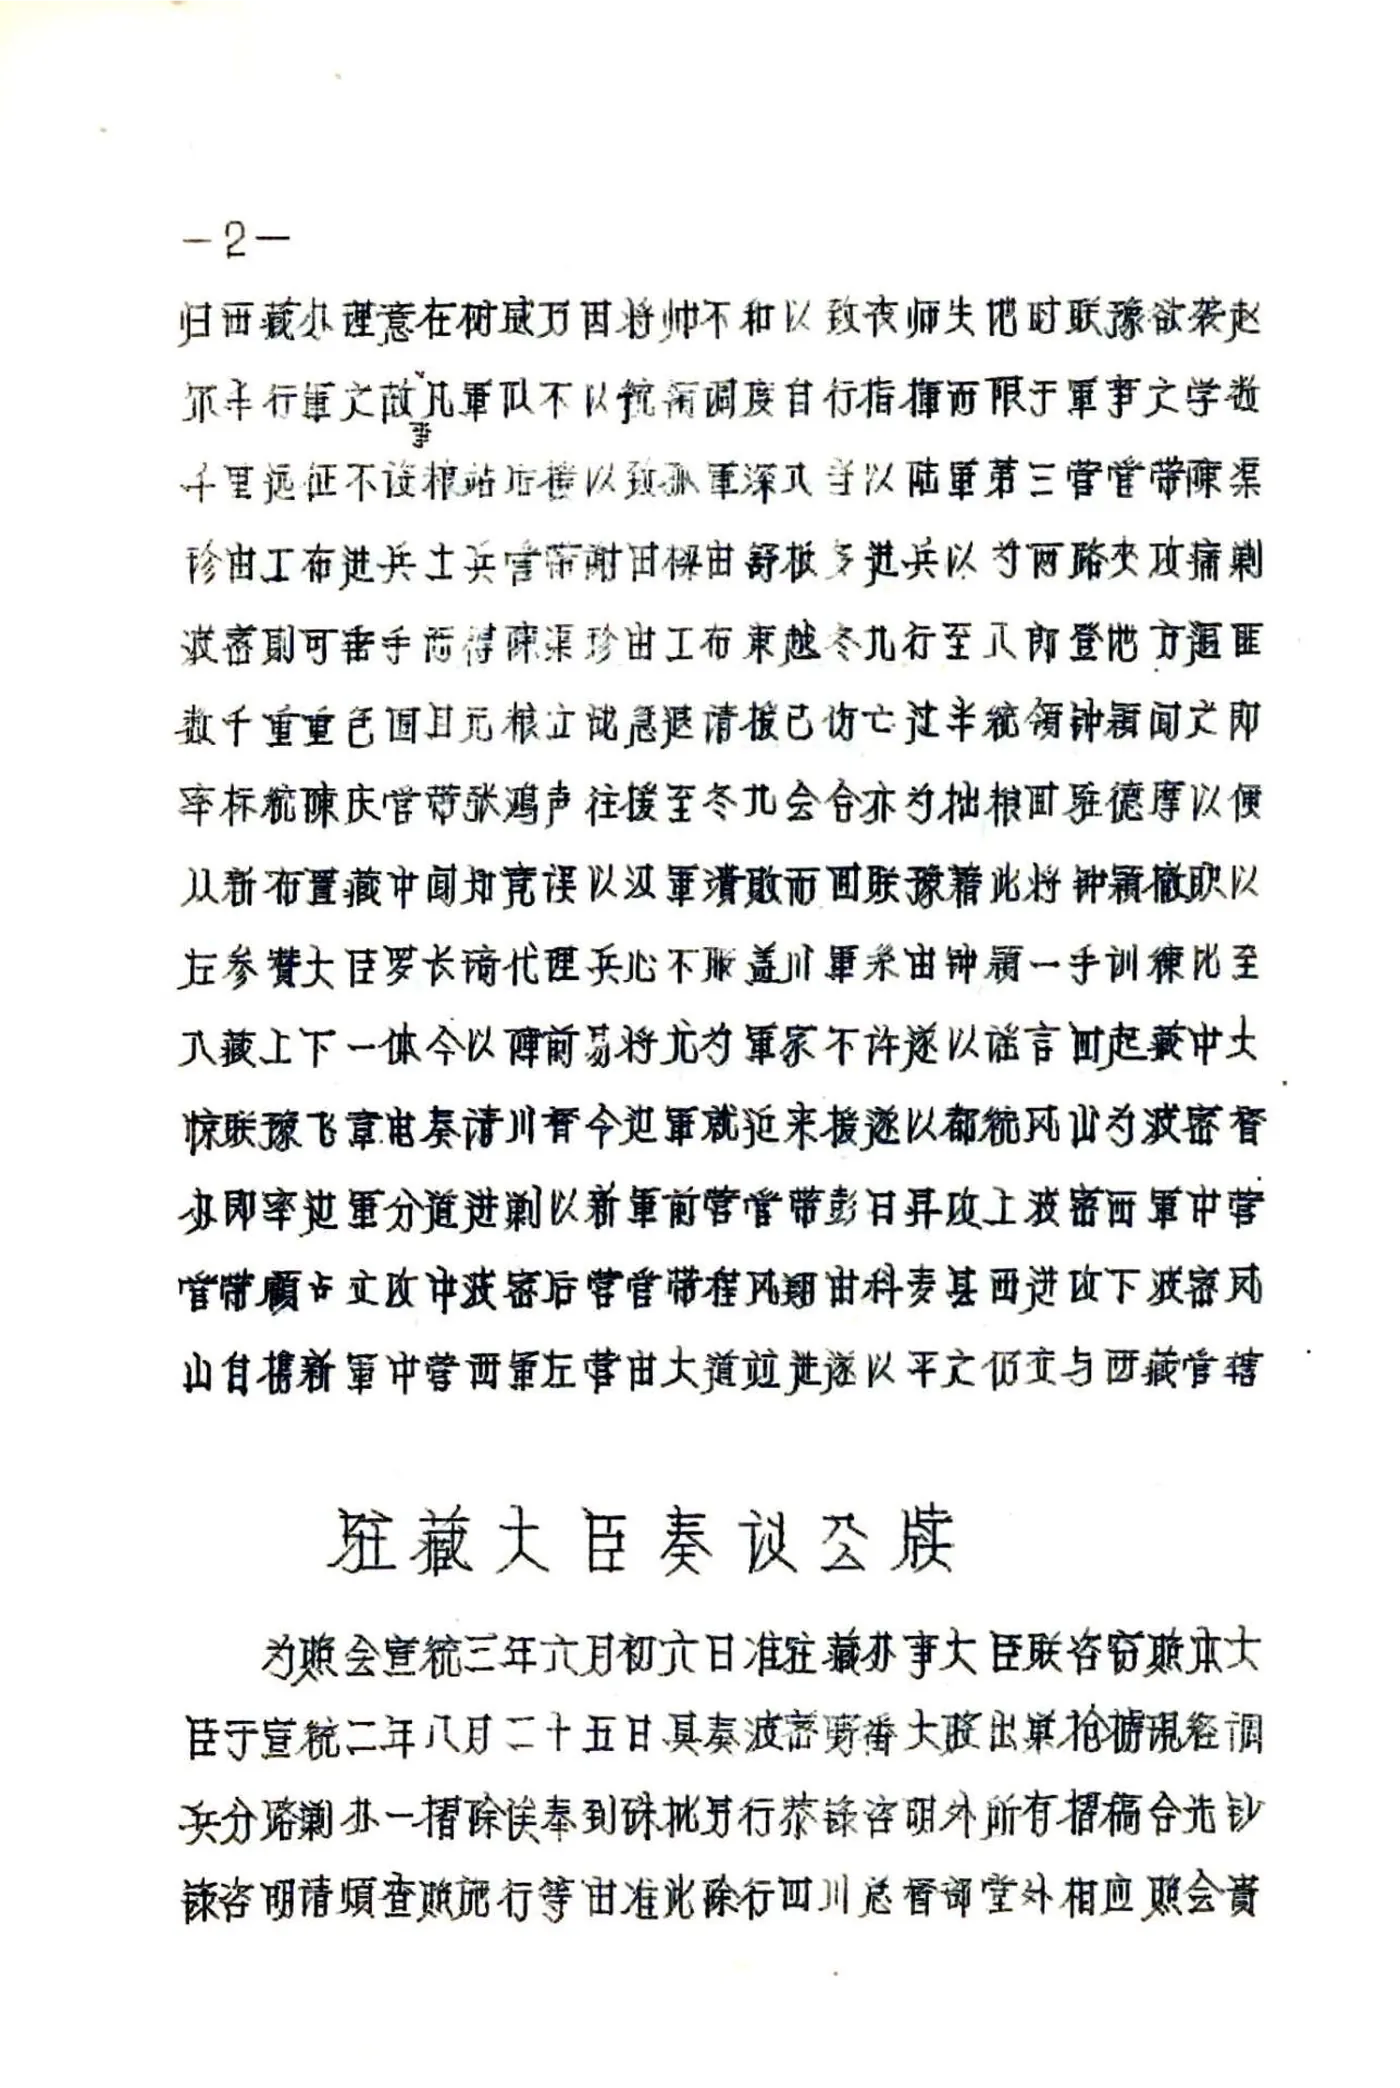 —2—
归西藏办理意在树威万因将帅不和以致丧师失地时联豫欲袭赵
尔丰行军文故凡軍队不以統領调度自行指揮而限于軍事文学数
事
千里远征不设粮站后援以致孤軍深入当以陆軍第三营管带陳渠
珍由工布进兵士兵管带謝国樑由舒板多进兵以为两路夹攻痛剿
波密則可垂手而得陳渠珍由工布東越冬九行至八郎登地方遇匪
数千重重包围且无粮立敌急退请援已伤亡过半統領钟穎闻之即
率标統陳庆管带张鸿声往援至冬九会合亦为拙粮回驻德摩以便
从新布置藏中闻知竟误以汉軍潰敗而回联豫藉此将钟穎撤职以
左参贊大臣罗长裿代理兵心不服盖川軍系由钟穎一手训練比至
入藏上下一体今以陣前易将尤为軍家不许遂以谣言四起藏中大
惊联豫飞章电奏请川督今边軍就近来援遂以都統风山为波密督
办即率边軍分道进剿以新軍前营管带彭日昇攻上波密西軍中营
管带顧占文攻中波密后营管带程风翔由科麦县西进攻下波密风
山自㩦新軍中营西軍左营由大道竝进遂以平之仍交与西藏管辖
驻藏大臣奏议公牍
为照会宣統三年六月初六日准驻藏办事大臣联咨窃照本大
臣于宣統二年八月二十五日具奏波密野番大股出巢抢掳現経调
兵分路剿办一摺除俟奉到硃批另行恭録咨明外所有摺稿合先钞
録咨明请煩查照施行等由准此除行四川总督部堂外相应照会貴